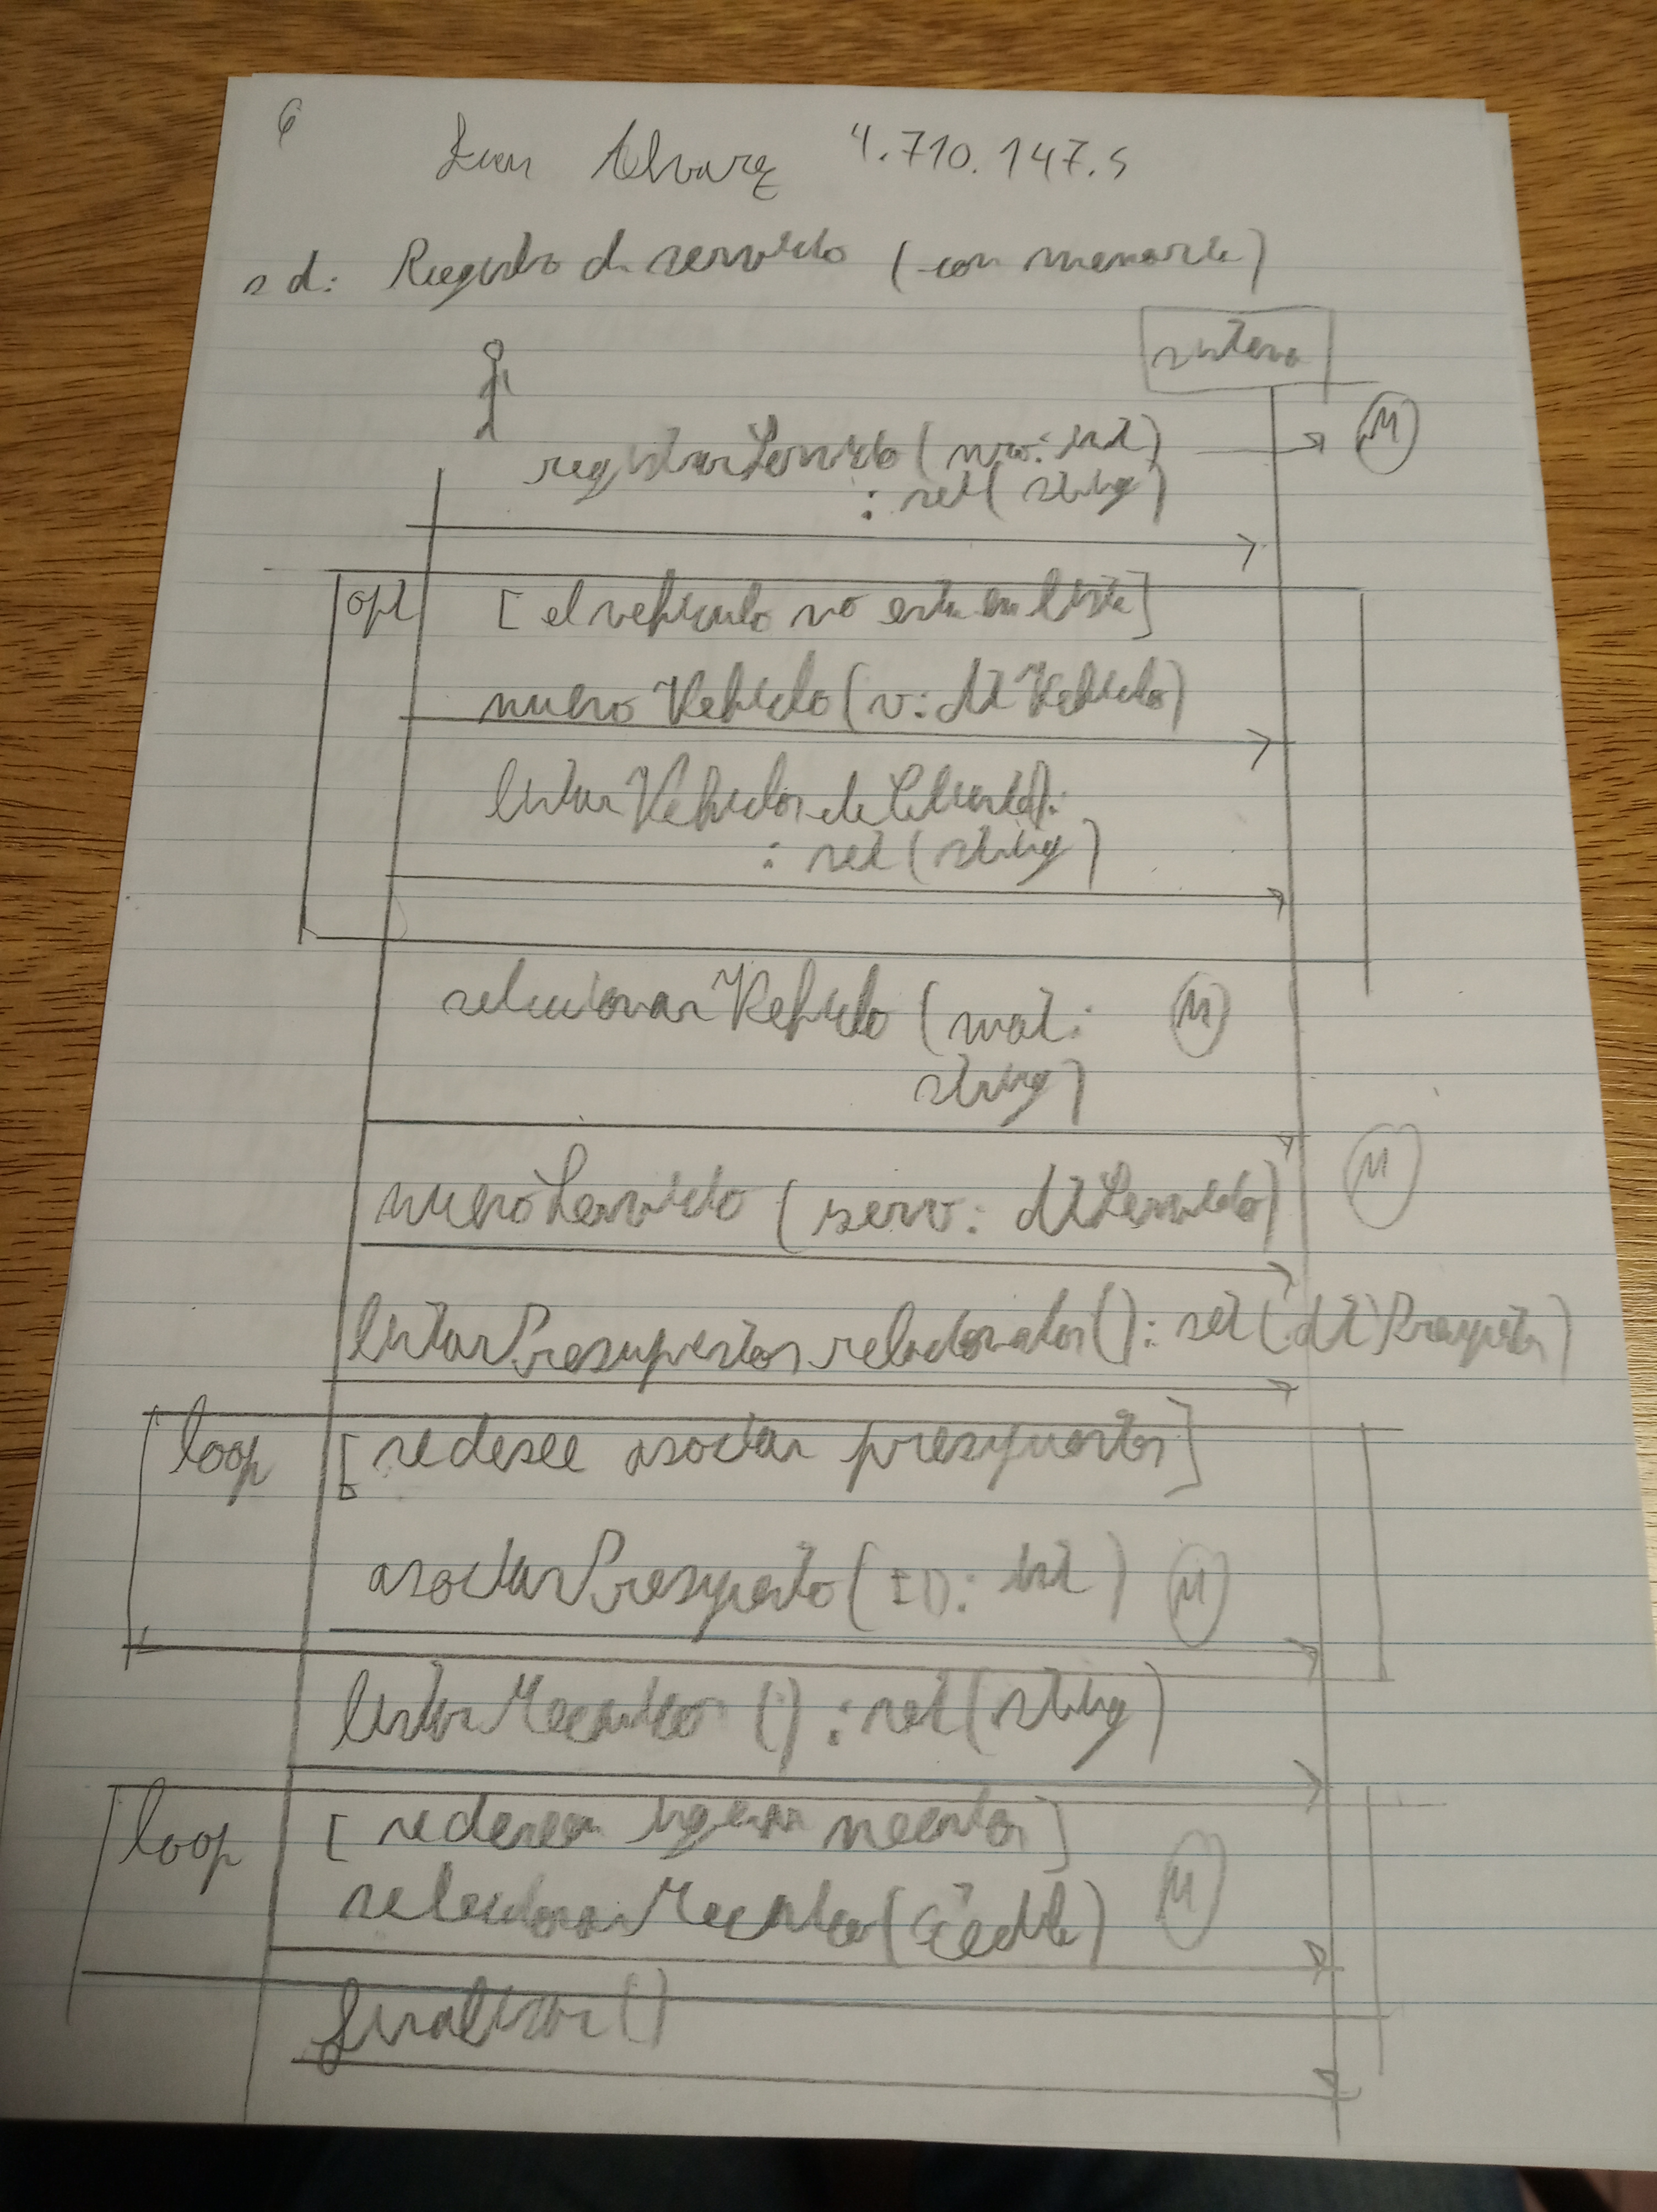 6
Juan Alvarez 4.710.147.5
sd: Registro de servicio (con memoria)
sistema
registrarServicio(nro: int) → M
: set(string)
opt [el vehiculo no esta en lista]
nuevoVehiculo(v: dtVehiculo)
listarVehiculosdeCliente():
: set(string)
seleccionarVehiculo(mat: M
string)
nuevoServicio(serv: dtServicio) M
listarPresupuestosrelacionados(): set(dtPresupuesto)
loop [se desee asociar presupuestos]
asociarPresupuesto(ID: int) M
listarMecanicos(): set(string)
loop [se deseen ingresar mecanicos]
seleccionarMecanico(cedula) M
finalizar()